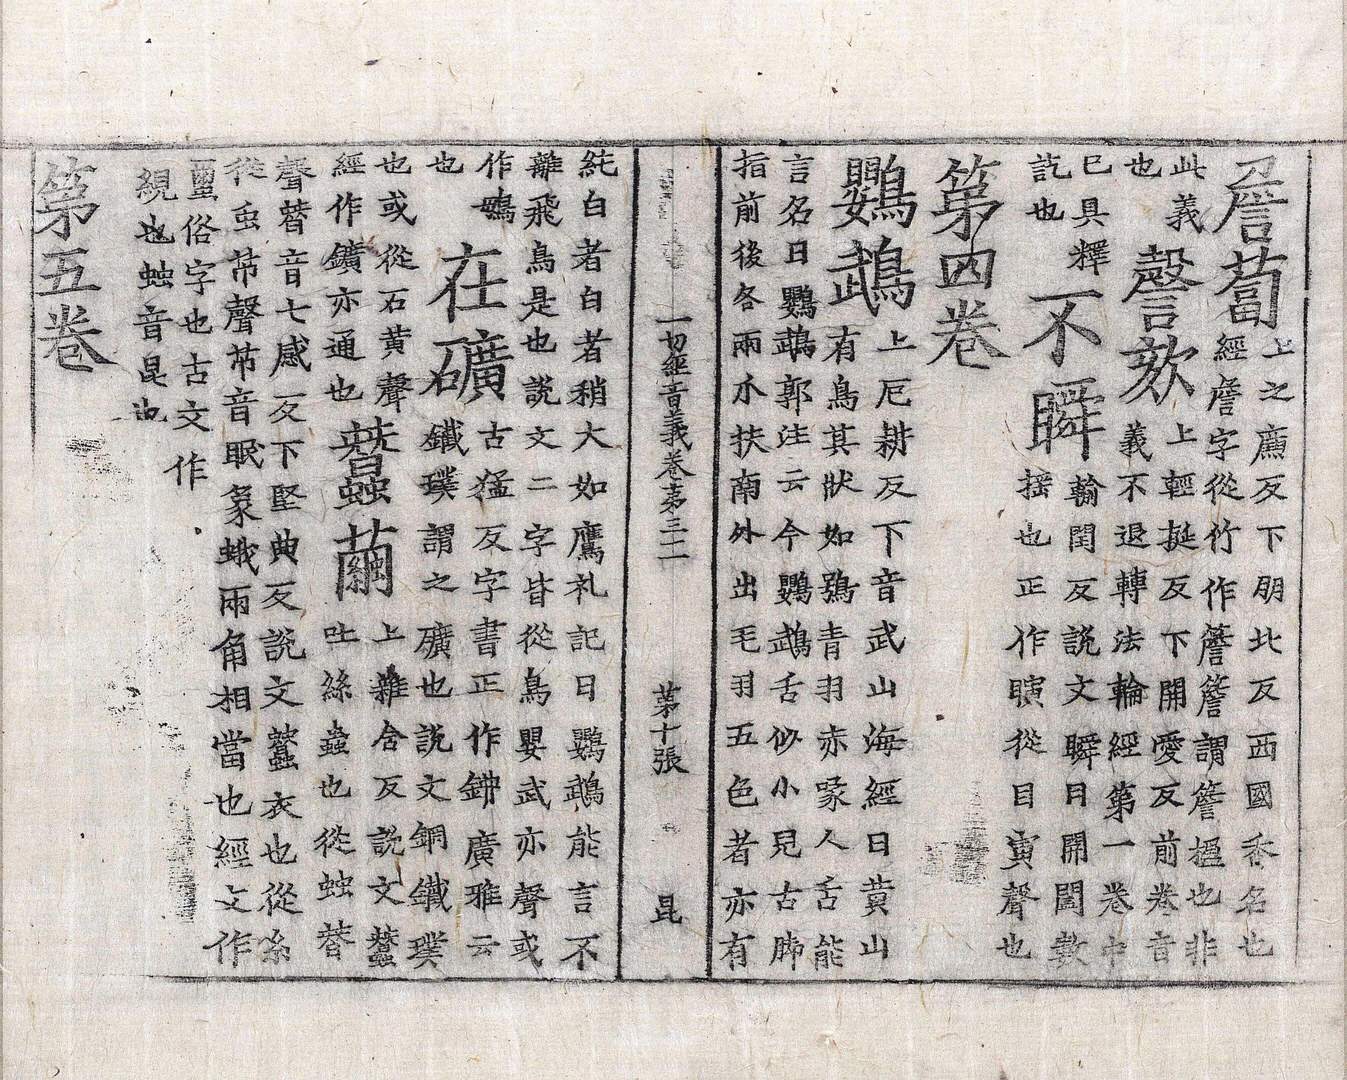 詹蔔
上之廉反下朋北反西國香名也
經詹字從竹作簷簷謂簷櫩也非
此義
也
謦欬
上輕挺反下開愛反前卷音
義不退轉法輪經第一卷中
已具釋
訖也
不瞬
輸閏反說文瞬目開闔數
搖也正作瞚從目寅聲也
第四卷
鸚鵡
上厄耕反下音武山海經曰黃山
有鳥其狀如鴞青羽赤喙人舌能
言名曰鸚鵡郭注云今鸚鵡舌似小兒古脚
指前後各兩爪扶南外出毛羽五色者亦有
一切經音義卷第三二 第十張 昆
純白者白者稍大如鷹礼記曰鸚鵡能言不
離飛鳥是也說文二字皆從鳥嬰武亦聲或
作䳇
也
在礦
古猛反字書正作廣雅云
鐵璞謂之礦也說文銅鐵璞
也或從石黃聲
經作鑛亦通也
蠶繭
上雜含反說文蠶
吐絲蟲也從䖵朁
聲朁音七感反下堅典反說文蠶衣也從糸
從虫芇聲芇音眠象蛾兩角相當也經文作
俗字也古文作
絸也䖵音昆也
第五卷